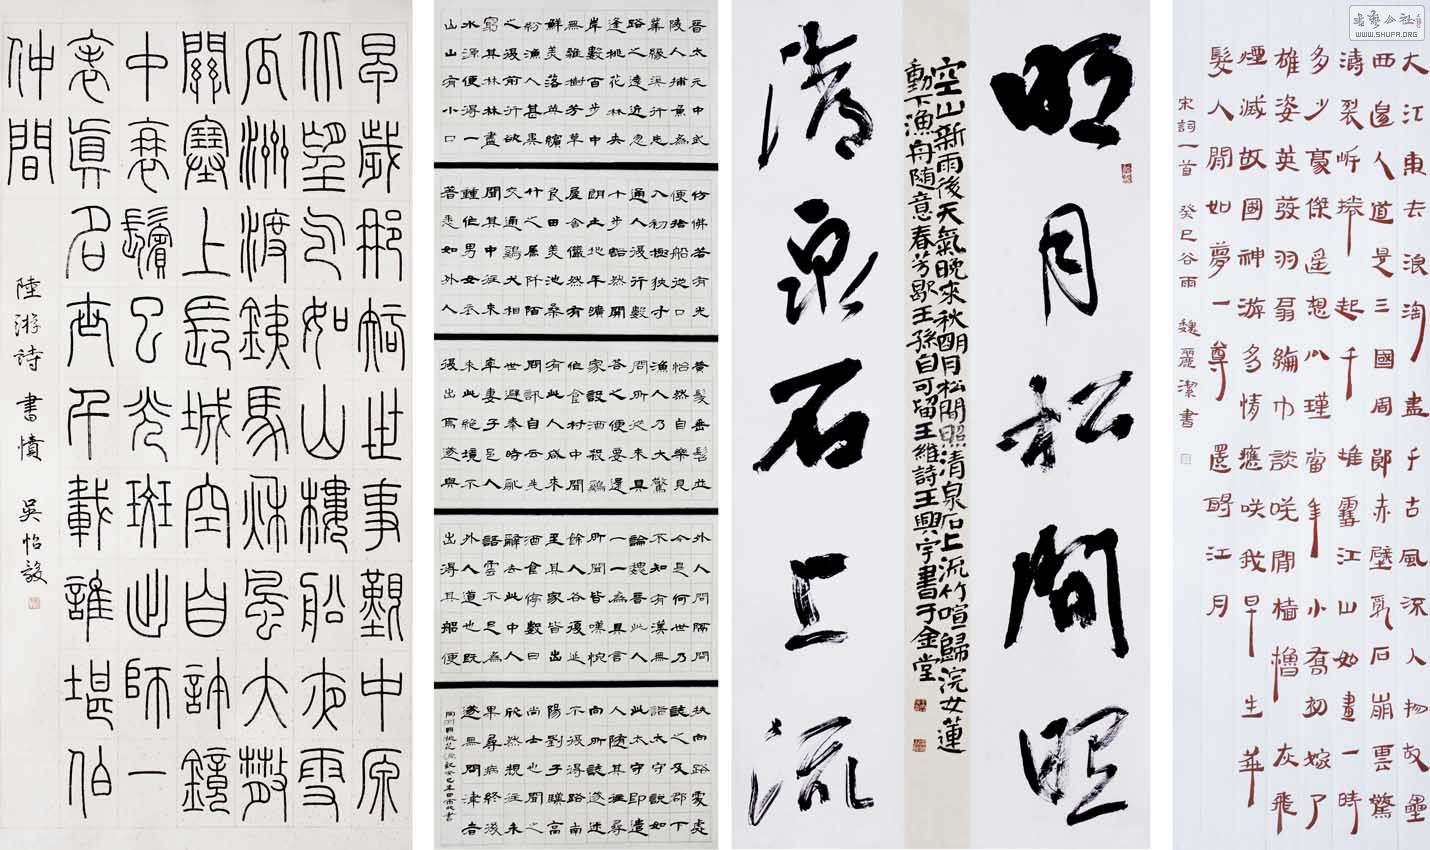 早歲那知世事艱中原
北望氣如山樓船夜雪
瓜洲渡鐵馬秋風大散
關塞上長城空自許鏡
中衰鬢已先斑出師一
表真名世千載誰堪伯
仲間
陸游詩 書憤 吳怡毅
晉太元中武
陵人捕魚為
業緣溪行忘
路之遠近忽
逢桃花林夾
岸數百步中
無雜樹芳草
鮮美落英繽
紛漁人甚異
之復前行欲
窮其林林盡
水源便得一
山山有小口
彷彿若有光
便捨船從口
入初極狹才
通人復行數
十步豁然開
朗土地平曠
屋舍儼然有
良田美池桑
竹之屬阡陌
交通雞犬相
聞其中往來
種作男女衣
著悉如外人
黃髮垂髫並
怡然自樂見
漁人乃大驚
問所從來具
答之便要還
家設酒殺雞
作食村中聞
有此人咸來
問訊自云先
世避秦時亂
率妻子邑人
來此絕境不
復出焉遂與
外人間隔問
今是何世乃
不知有漢無
論魏晉此人
一一為具言
所聞皆嘆惋
餘人各復延
至其家皆出
酒食停數日
辭去此中人
語雲不足為
外人道也既
出得其船便
扶向路處處
誌之及郡下
詣太守說如
此太守即遣
人隨其往尋
向所誌遂迷
不復得路南
陽劉子驥高
尚士也聞之
欣然規往未
果尋病終後
遂無問津者
明月松間照
空山新雨後天氣晚來秋明月松間照清泉石上流竹喧歸浣女蓮
動下漁舟随意春芳歇王孫自可留王維詩王興宇書于金堂
清泉石上流
大江東去浪淘盡千古風流人物故壘
西邊人道是三國周郎赤壁亂石崩雲驚
濤裂岸捲起千堆雪江山如畫一時
多少豪傑遥想公瑾當年小喬初嫁了
雄姿英發羽扇綸巾談笑間檣櫓灰飛
煙滅故國神游多情應笑我早生華
髮人間如夢一尊還酹江月
宋詞一首 癸巳谷雨 魏麗潔書
书艺公社
WWW.SHUFA.ORG